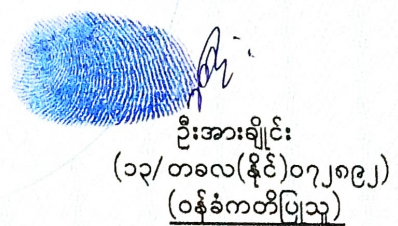 ဦးအားချိုင်း
(၁၃/တခလ(နိုင်)၀၇၂၈၉၂)
(ဝန်ခံကတိပြုသူ)